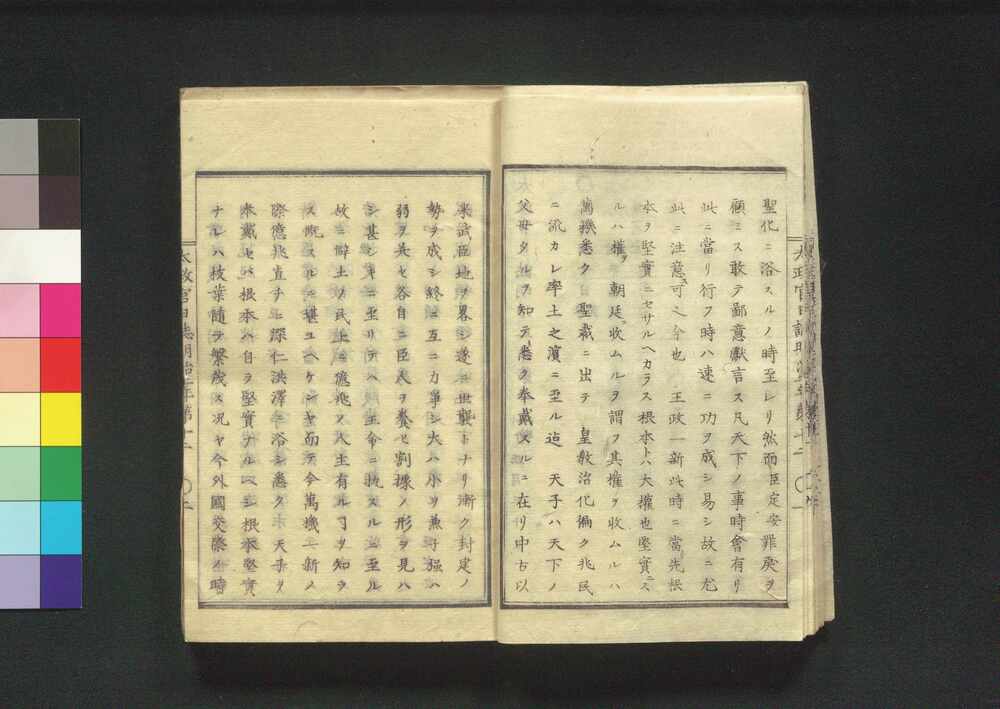 聖化ニ浴スルノ時至レリ然而臣定安罪戻ヲ
顧ミス敢テ鄙意獻言ス凡天下ノ事時會有リ
此ニ當リ行フ時ハ速ニ功ヲ成シ易シ故ニ尤
此ニ注意可ヘク今也 王政一新此時ニ當先根
本ヲ堅實ニセサルヘカラス根本トハ大權也堅實ニス
ルハ權ヲ朝廷收ムルヲ謂フ其權ヲ收ムルハ
萬機悉ク 聖裁ニ出テ 皇教治化徧ク兆民
ニ流カレ率土之濱ニ至ル迠 天子ハ天下ノ
父母タルヲ知テ悉ク奉戴スルニ在リ中古以
來武臣地ヲ畧シ遂ニ世襲トナリ漸ク封建ノ
勢ヲ成シ終ニ互ニ力爭シ大ハ小ヲ兼ネ强ハ
弱ヲ呑セ各自ニ臣民ヲ養ヒ割據ノ形ヲ見ハ
シ甚シキニ至リテハ 王命ニ抗スルニ至ル
故ニ僻土ノ民上ニ億兆ノ人主有ルヿヲ知ラ
ス慨スルニ堪ユヘケンヤ而テ今萬機一新ノ
際億兆直チニ深仁洪澤ニ浴シ悉ク 天子ヲ
奉戴セハ根本ハ自ラ堅實ナルヘシ根本堅實
ナレハ枝葉隨テ繁茂ス况ヤ今外國交際ノ時
太政官日誌明治二年第十二 〇二